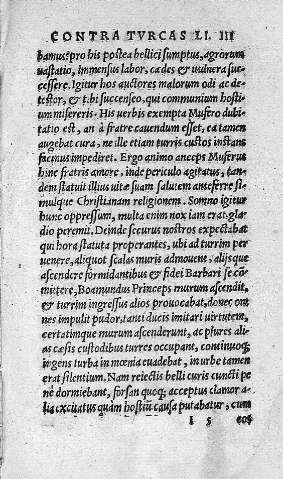 CONTRA TVRCAS LI. III
bamus: pro his postea bellici sumptus, agrorum
uastatio, immensus labor, cædes & uulnera suc-
cessere. Igitur hos auctores malorum odi ac de-
testor, & t.bi succenseo, qui communium hosti
um misereris. His uerbis exempta Musero dubi
tatio est, an à fratre cauendum esset, ea tamen
augebat cura, ne ille etiam turris custos instans
facinus impediret. Ergo animo anceps Muserus
hinc fratris amore, inde periculo agitatus, tan-
dem statuit illius uitæ suam salutem anteferre si
mulque Christianam religionem. Somno igitur
hunc oppressum, multa enim nox iam erat, gla-
dio peremit. Deinde securus nostros expectabat
qui hora statuta properantes, ubi ad turrim per
uenere, aliquot scalas muris admouent, alijsque
ascendere formidantibus & fidei Barbari se cō-
mittere, Boamundus Princeps murum ascendit,
& turrim ingressus alios prouocabat, donec om
nes impulit pudor, tanti ducis imitari uirtutem,
certatimque murum ascenderunt, ac plures alias
cæsis custodibus turres occupant, continuoq;
ingens turba in mœnia euadebat, in urbe tamen
erat silentium. Nam reiectis belli curis cuncti pe
ne dormiebant, forsan quoq; acceptus clamor a-
lia excitatus quàm hostiū causa putabatur, cum
l 5 eos